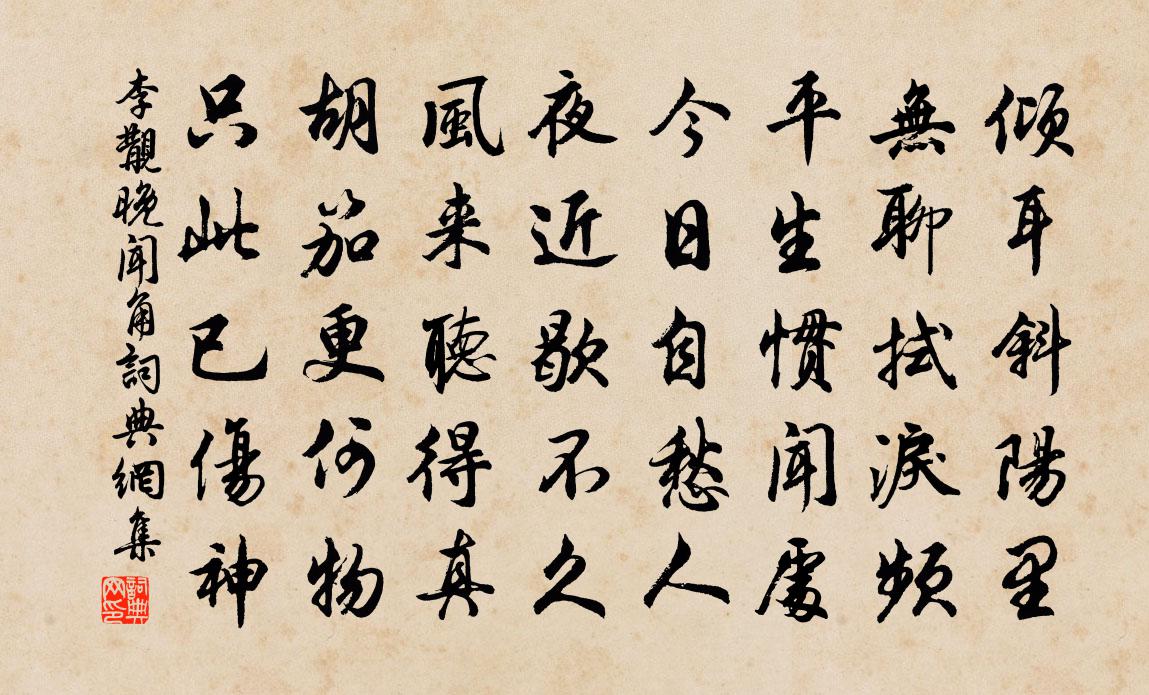 傾耳斜陽里
無聊拭淚頻
平生慣聞處
今日自愁人
夜近歇不久
風来聽得真
胡笳更何物
只此已傷神
李覯晚聞角詞典網集
詞典网印